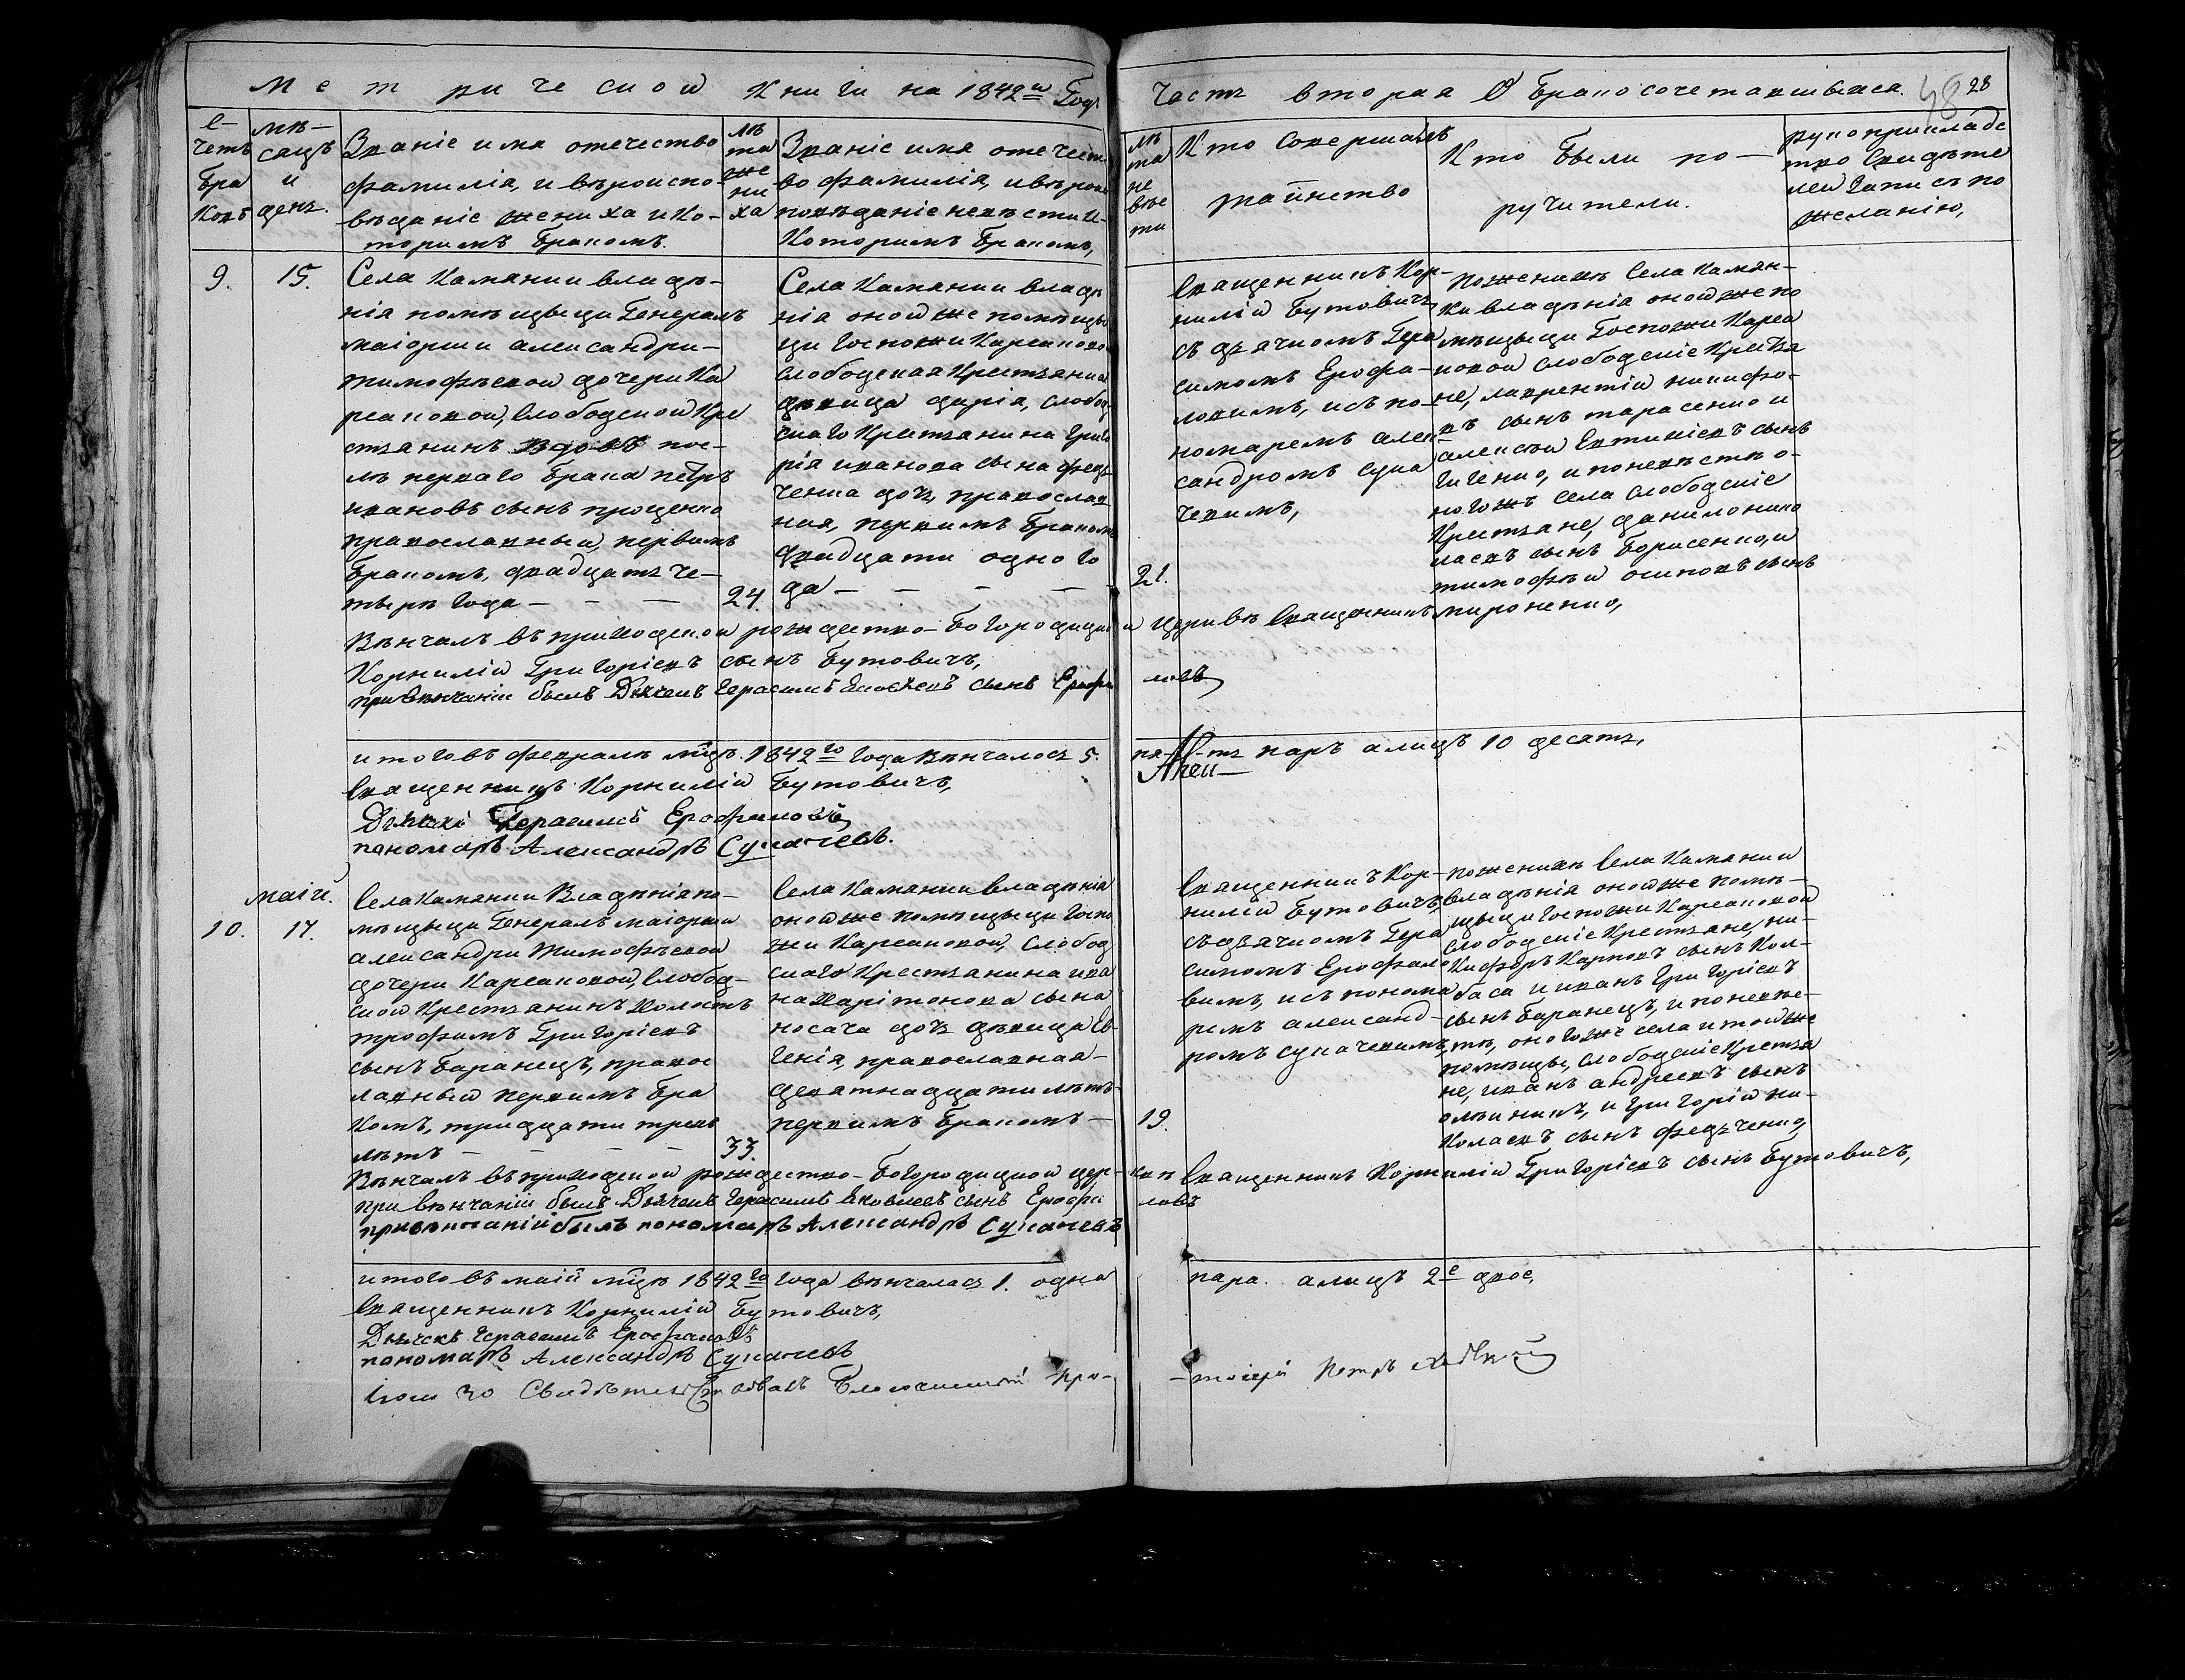 Метрической Книги на 1842й Годъ
Часть вторая О бракосочетавшыхся.
48 28
С-
четъ
бра
ковъ
мѣ-
сяцъ
и
день.
Званіе имя отечество
фамилія, и вѣроиспо-
вѣданіе жениха и ко-
торимъ бракомъ.
лѣ
та
же
ни
ха
Званіе имя отечест
во фамилія, и вѣрои
повѣданіе невѣсти и
которимъ бракомъ,
лѣ
та
не
вѣс
ти
Кто совершалъ
таинство
Кто были по-
ручители.
рукоприкладс
тво свидѣте
лей записъ по
желанію,
9.
15.
Села Камянки владѣ-
нія помѣщыци Генералъ
маіорши александри-
тимофѣевой дочери Ка
рсаковой, слободской Кре
стянинъ вдовъ пос-
лѣ перваго брака петръ
ивановъ сынъ проценко
православный, первымъ
бракомъ, двадцатъ че-
тырѣ года - - -
24.
Села Камянки владѣ
нія оной же помѣщы
ци госпожи Карсаковой
слободская Крестянка
дѣвица дарія, слобод-
скаго Крестянина Григо
рія иванова сына федь-
ченка дочь, православ
ная, первимъ бракомъ
двадцати одного
да - - - -
21.
Священникъ Кор-
нилій Бутовичъ,
съ дьячкомъ Гера
симомъ Ерофа-
ловимъ, и съ по-
номаремъ алек-
сандромъ сука
чевимъ,
по женихѣ Села Камян-
ки владѣнія оной же по
мѣщыци Госпожи Карса
ковой слободскіе Крестя
не, лаврентій никифо-
въ сынъ тарасенко и
алексѣй Евтихіевъ сынъ
гиченко, и по невѣстѣ о-
ного жъ села слободскіе
Крестяне, данило нико
лаевъ сынъ борисенко, и
тимофѣй осиповъ сынъ
мироненко,
Вѣнчалъ въ приходской рождество-богородицкой церквѣ священникъ
Корнилій Григоріевъ сынъ Бутовичъ,
при вѣнчаніи былъ Дьячекъ Герасимъ Яковлевъ сынъ Ерофа ловъ
итого въ февралѣ мцѣ. 1842го года вѣнчалось 5. пя-ть паръ а лицъ 10 десять,
священникъ Корнилій Бутовичъ,
Дьячекъ Герасимъ Ерофаловъ
пономаръ Александръ Сукачевъ.
10.
маій.
17.
Села Камянки Владѣнія по-
мѣщыци Генералъ маіорши
александри Тимофѣевой
дочери Карсаковой, слобод-
ской Крестянинъ Холостъ
трофимъ Григоріевъ
сынъ баранецъ, правос
лавный первимъ бра
комъ, тридцати трехъ
лѣтъ - - - -
33.
Села Камянки владѣнія
оной же помѣщыци госпо
жи Карсаковой, слобод
скаго Крестянина ива
на харітонова сына
носача дочь дѣвица Ев-
генія, православная-
девятнадцати лѣтъ-
первимъ бракомъ-
19.
Священникъ Кор-
нилій Бутовичъ,
съ дьячкомъ Гера
симомъ Ерофало
вимъ, и съ понома
ремъ александ-
ромъ сукачевимъ,
по женихѣ Села Камянки
владѣнія оной же помѣ-
щыци госпожи Карсаковой
слободскіе Крестяне, ни-
кифоръ Карповъ сынъ Кол-
баса и иванъ Григоріевъ
сынъ баранецъ, и по невѣс-
тѣ, оного же села и той же
помѣщы, слободскіе Крестя
не, иванъ андреевъ сынъ
олѣйникъ, и Григорій ни-
колаевъ сынъ федьченко,
Вѣнчалъ въ приходской рождество-богородицкой цер-квѣ священникъ Корнилій Григоріевъ сынъ Бутовичъ,
при вѣнчаніи былъ Дьячекъ Герасимъ Яковлевъ сынъ Ерофа ловъ
при вѣнчаніи былъ пономаръ Александръ Сукачевъ
итого въ маіи мцѣ 1842го года вѣнчалась 1. одна пара. а лицъ 2е двое,
священникъ Корнилій Бутовичъ,
Дьячекъ Герасимъ Ерофаловъ
пономаръ Александръ Сукачевъ
Свидѣтельствовалъ Благочинный Про-тоіерей Петръ